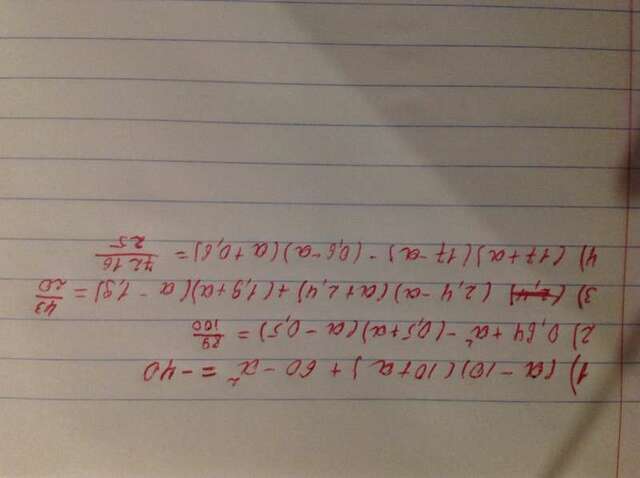 1) (a - 10)(10+a) + 60 - a² = -40
2) 0,64 + a² - (0,5+a)(a - 0,5) = 89/100
3) (2,4) (2,4 - a)(a + 2,4) + (1,9+a)(a - 1,9) = 43/20
4) (17+a)(17-a) - (0,6-a)(a+0,6) = 7216/25